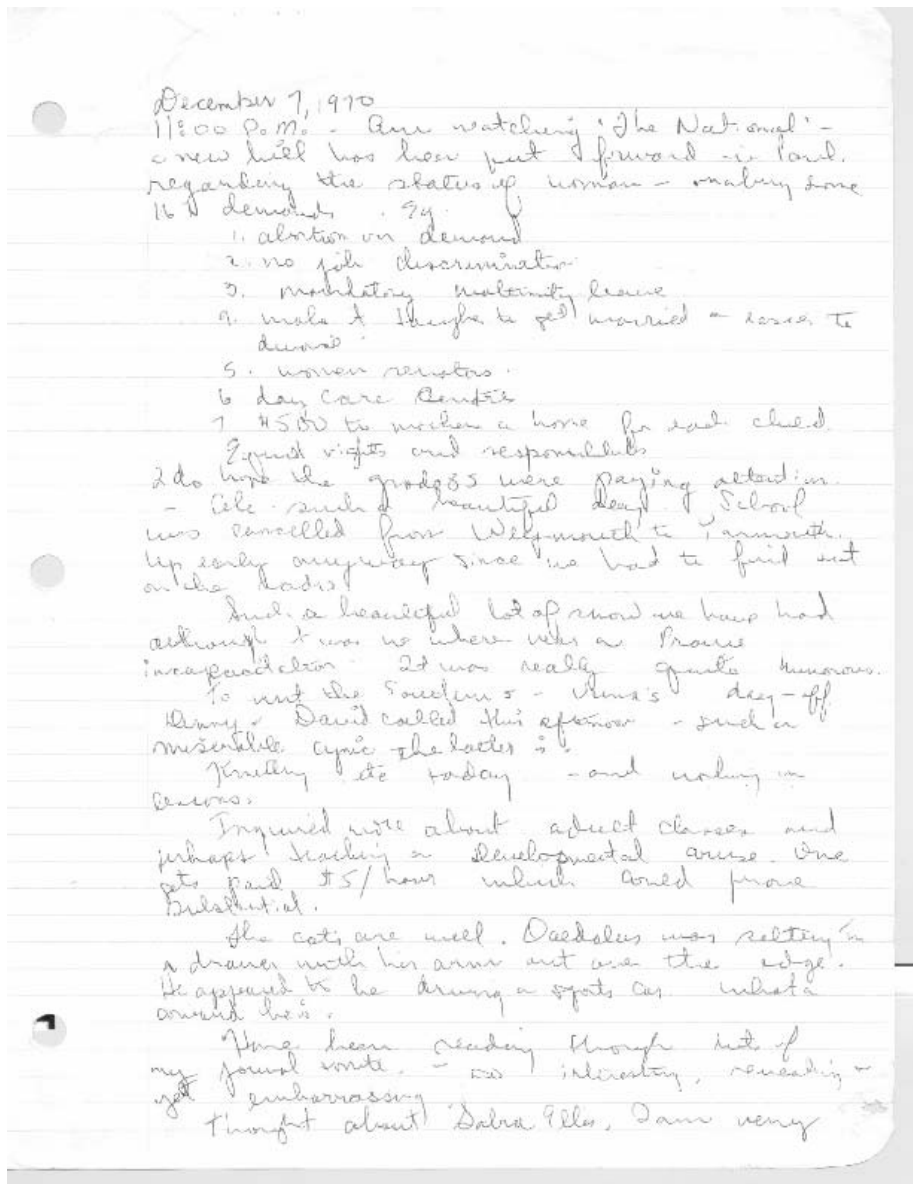 December 7, 1970
11:00 P.M. - Am watching 'The National' -
a new bill has been put forward in Parl.
regarding the status of woman - making some
16 demands. eg.
1. abortion on demand
2. no job discrimination
3. mandatory maternity leave
4. make it tougher to get married - easier to
divorce.
5. women senators.
6 day care Centres
7 $500 to mothers a home for each child.
Equal rights and responsibilities
I do hope the were paying attention.
- such a beautiful day. School
was cancelled from Weymouth to Yarmouth.
Up early anyway since we had to find out
on the radio.
Such a beautiful lot of snow we have had
although it was no where near a Prairie
It was really quite humorous.
To the - day-off.
David called this afternoon - such a
miserable cynic the latter is.
Knitting etc today - and working on
lessons.
Inquired more about adult classes and
perhaps teaching a Developmental course. One
gets paid $5/hour which could prove
substantial.
The cats are well. Daedalus was sitting in
a drawer with his arm out over the edge.
He appeared to be driving a sports car. What a
he is.
Have been reading through lots of
my journal - so interesting, revealing -
yet embarrassing
Thought about I am very